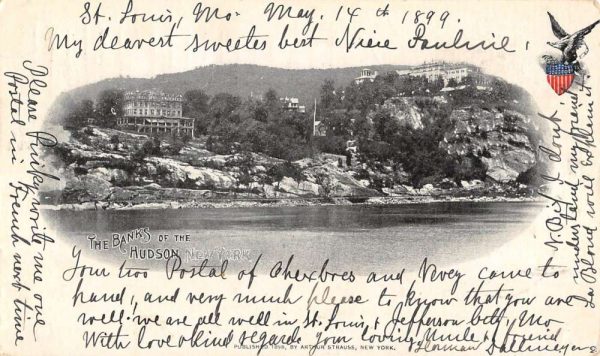 St. Louis, Mo. May. 14th 1899.
My dearest sweetes best Niece Pauline,
Please Pinky write me one
Postal in French next time
THE BANKS OF THE
HUDSON NEW YORK
Your two Postal of Chexbres and Vivey came to
hand, and very much please to know that you are
well. we are all well in St. Louis, & Jefferson City, Mo
With love & kind regards. Your loving Uncle & friend
Herman
PUBLISHED 1898, BY ARTHUR STRAUSS, NEW YORK.
N.B. if I don't
understand my french
La Blond will explain it.